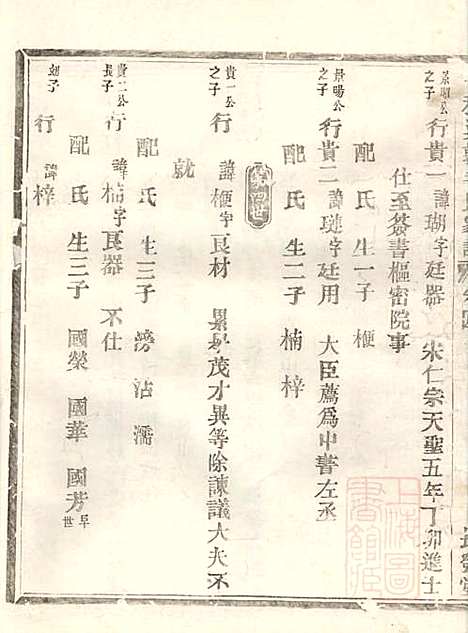 景暘公之子 行貴一 諱瑚字廷器 宋仁宗天聖五年丁卯進士
仕至簽書樞密院事
配 氏 生一子 楩
景暘公之子 行貴二 諱璉字廷用 大臣薦為中書左丞
配 氏 生二子 楠 梓
世
貴一公之子 行 諱楩字良材 累舉茂才異等除諫議大夫不
就
配 氏 生三子 滂 沾 濡
貴二公長子 行 諱楠字良器 不仕
配 氏 生三子 國榮 國華 國芳早世
次子 行 諱梓
上海圖書館藏